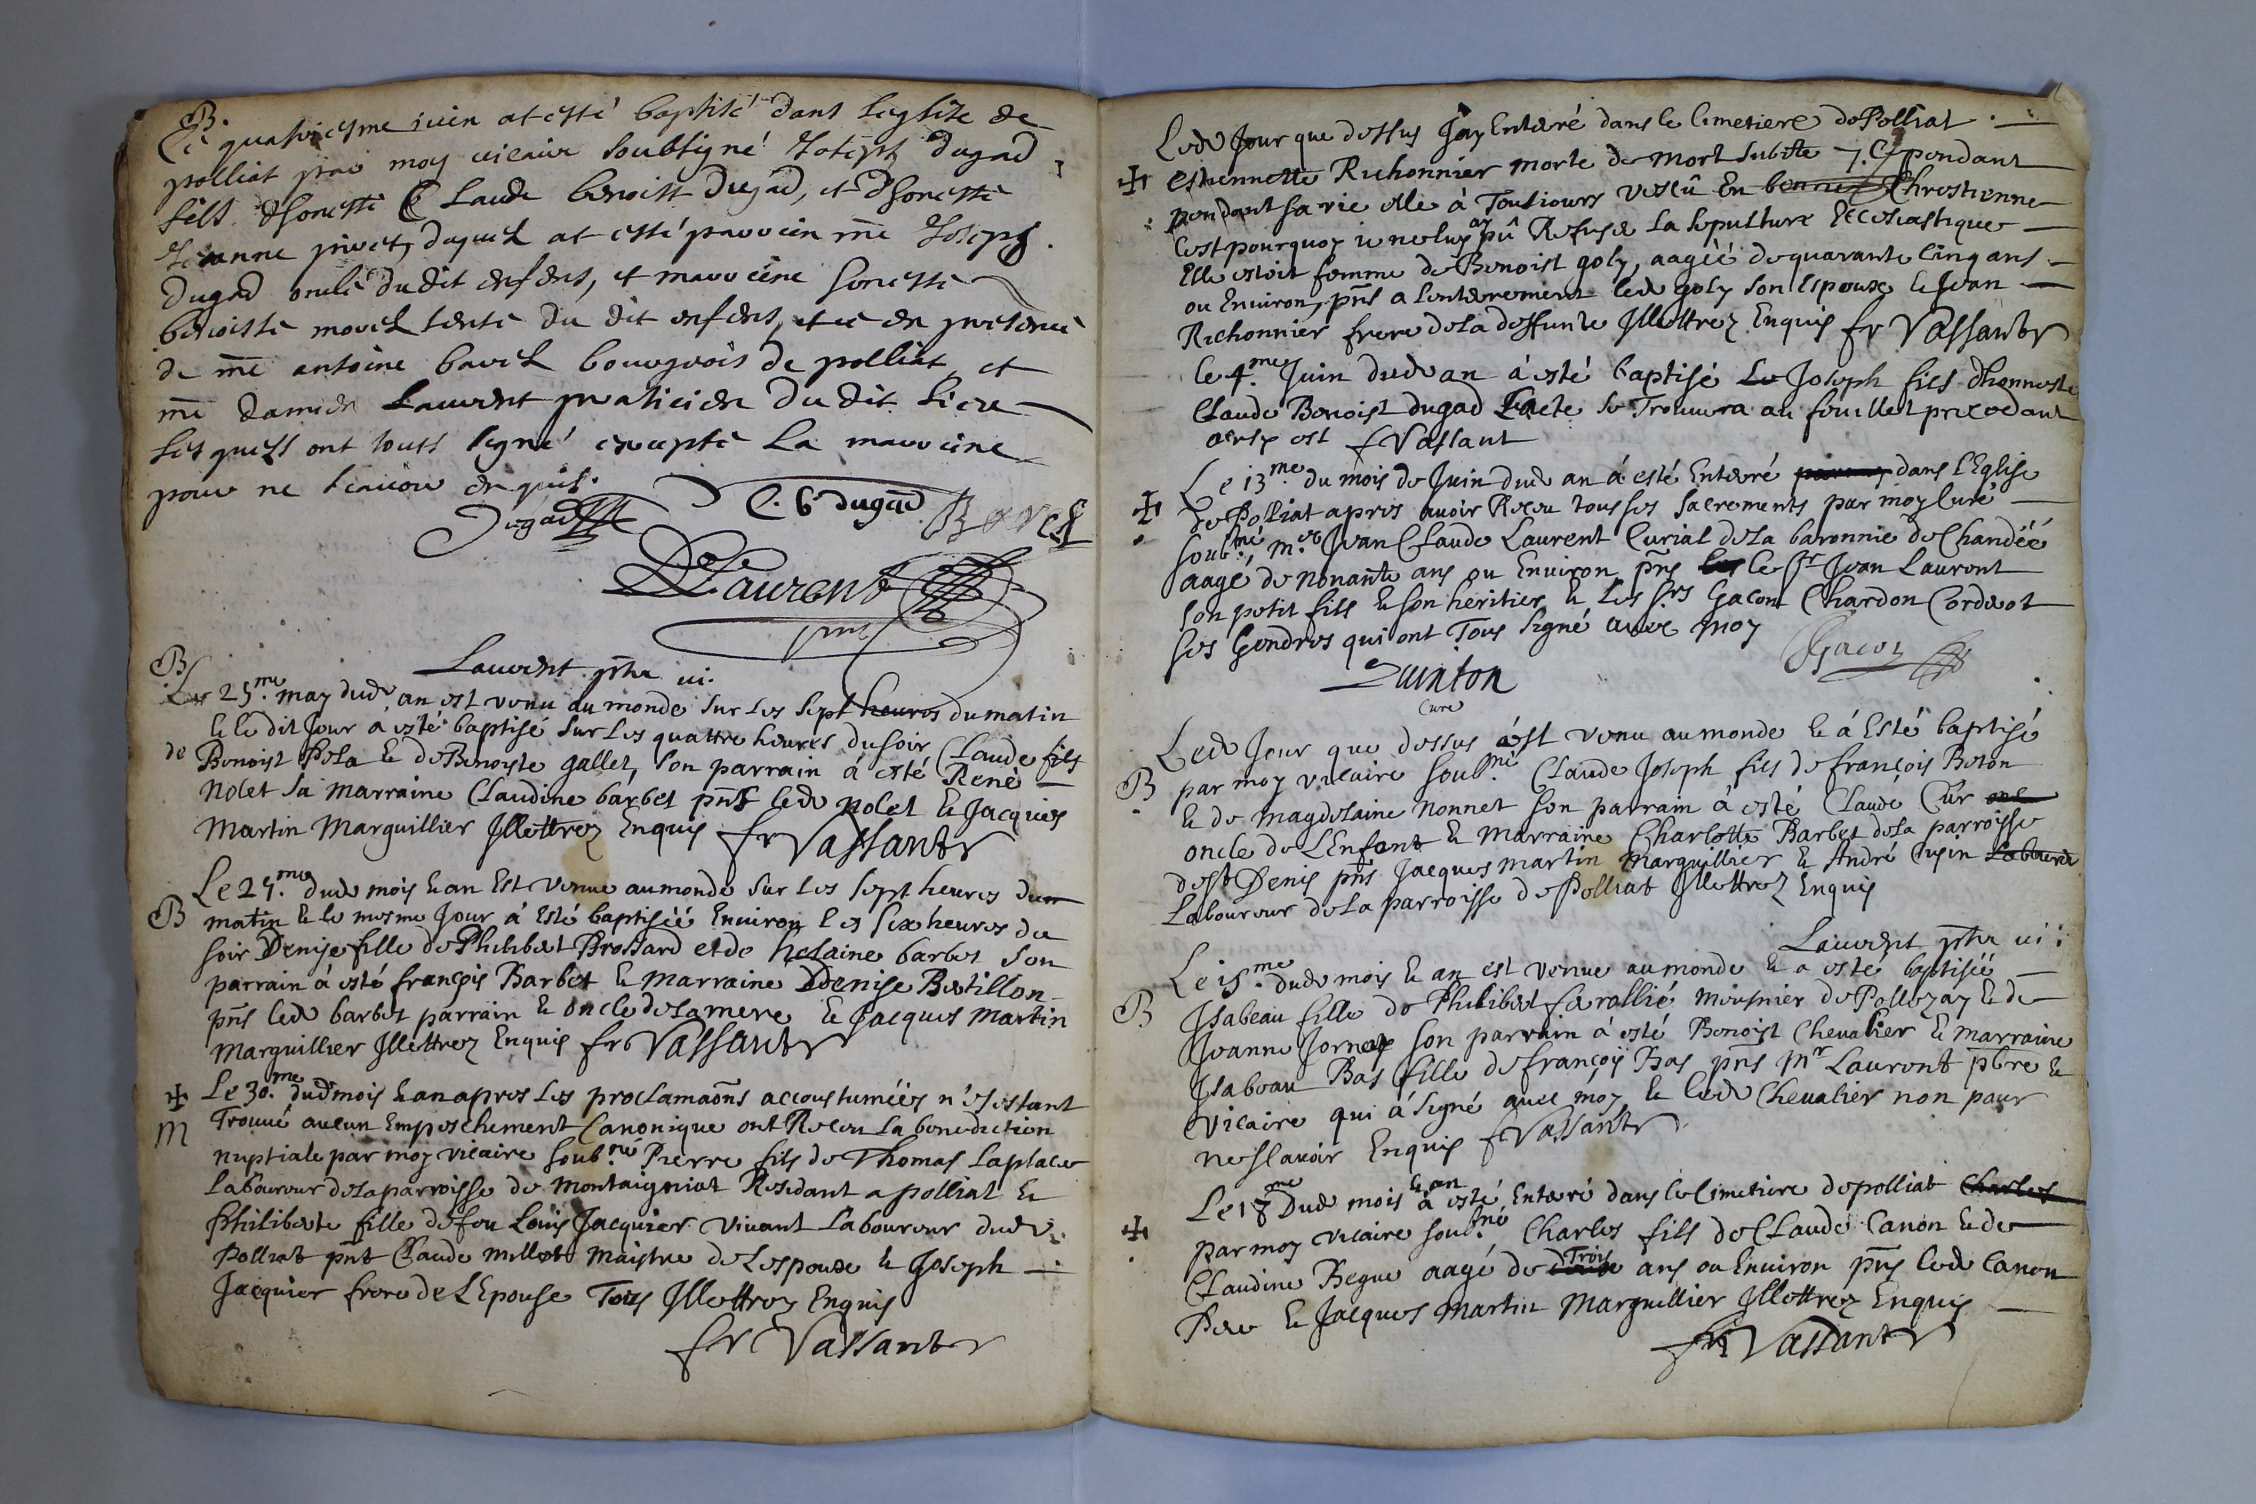 B.
Ce quatriesme iuin at esté baptisé dans leglise de
polliat par moy vicaire soubsigné Joseph dugad
fils d'honeste Claude benoist dugad, et d'honeste
Jeanne pivet, duquel at esté parrein me Joseph
dugad oncle du dit enfent, et marreine honeste
benoiste morel tente du dit enfent, et ce en presence
de me antoine borel bourgeois de polliat, et
me damien Laurent praticien du dit lieu
lesquels ont touts signé excepté la marreine
pour ne scavoir enquis.
Dugad C. b dugad Borel
D Laurent
Laurent ptre vi.
B
Le 25.me may dud. an est venu au monde sur les sept heures du matin
& le dit Jour a esté baptisé sur les quattre heures du soir Claude fils
de Benoist Pola & de Benoiste gallet, son parrain à esté René
Nolet sa marraine Claudine barbet pnts led. polet & Jacques
Martin Marguillier Jllettrez Enquis fr Vassant
Le 27.me dud. mois & an Est venue au monde sur les sept heures du
B matin & le mesme Jour à Esté baptiséé Environ les six heures du
soir Denise fille de Philibert Brossard et de helaine barbet son
parrain à esté françois Barbet & marraine Denise Bertillon
pnts led. barbet parrain & oncle de la mere & Jacques Martin
Marguillier Jllettrez Enquis fr Vassant
✠ Le 30.me dud. mois & an apres les proclamaons accoustuméés n'esestant
M Trouué aucun Empeschement Canonique ont Receu la benediction
nuptiale par moy vicaire soub.né Pierre fils de Thomas Laplace
Laboureur de la parroisse de Montaigniat Residant a polliat &
Philiberte fille de feu Louis Jacquier vivant Laboureur dud.
Polliat pnt Claude millet Maistre de Lespouse & Joseph
Jacquier frere de LEpouse Tous Jllettrez Enquis
fr Vassant
Led. Jour que dessus Jay Enterré dans le Cimetiere de Polliat.
✠ Estiennette Richonnier morte de mort subitte. Cependant
pendant sa vie elle à Tousiours vescû En bonne Chrestienne
Cest pourquoy ie ne luy ay pû Refuser La sepulture Ecclesiastique
Elle estoit femme de Benoist goly, aagéé de quarante Cinq ans
ou Environ, pnts a Lenterrement led. goly son Espoux & Jean
Richonnier frere de la deffunte Jllettrez Enquis fr Vassant
Le 4.me Juin dud. an à esté baptisé Le Joseph fils d'honneste
Claude Benoist dugad Lacte se Trouuera au feuillet precedant
fr Vassant
Le 13.me du mois de Juin dud. an á esté Enterré dans l'Eglise
✠ de Polliat apres avoir Receu tous ses sacrements par moy Curé
soub.né, m.e Jean Claude Laurent Curial de la baronnie de Chandéé
aagé de nonante ans ou Environ pnts le Sr Jean Laurent
son petit fils & son heritier & les Srs Gacon Chardon Corderot
ses Gendres qui ont Tous signé avec moy
Quinton Gacon
Curé
Led. Jour que dessus ést venu au monde & á Esté baptisé
B par moy vicaire soub.né Claude Joseph fils de françois Boton
& de Magdelaine Nonnet son parrain à esté Claude Cur
oncle de LEnfant & Marraine Charlotte Barbet de la parroisse
de St Denis pnts Jacques Martin Marguillier & André Cusin Laboureur
Laboureur de la parroisse de Polliat Jllettrez Enquis
Laurent ptre vi:
Le 15.me dud. mois & an est venue au monde & a esté baptiséé
B Jsabeau fille de Philibert feralliè Meusnier de Pollezay & de
Jeanne Jornet son parrain à esté Benoist Chevalier & marraine
Jsabeau Bas fille de françois Bas pnts Mr Laurent pbre &
vicaire qui à signé avec moy & led. Chevalier non pour
ne sçavoir Enquis fr Vassant
Le 18.me Dud. mois & an à esté Enterré dans le Cimetiere de polliat Charles
✠ par moy vicaire soub.né Charles fils de Claude Canon & de
Claudine Begue aagé de Trois ans ou Environ pnts led. Canon
Pere & Jacques Martin Marguillier Jllettrez Enquis
fr Vassant